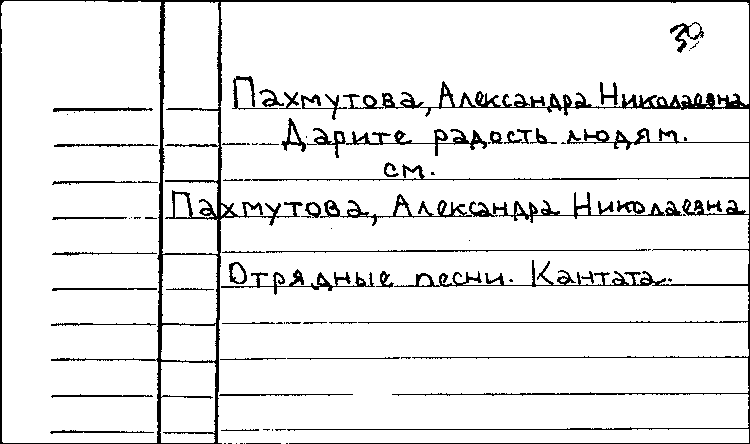 39
Пахмутова, Александра Николаевна
Дарите радость людям.
см.
Пахмутова, Александра Николаевна
Отрядные песни. Кантата.